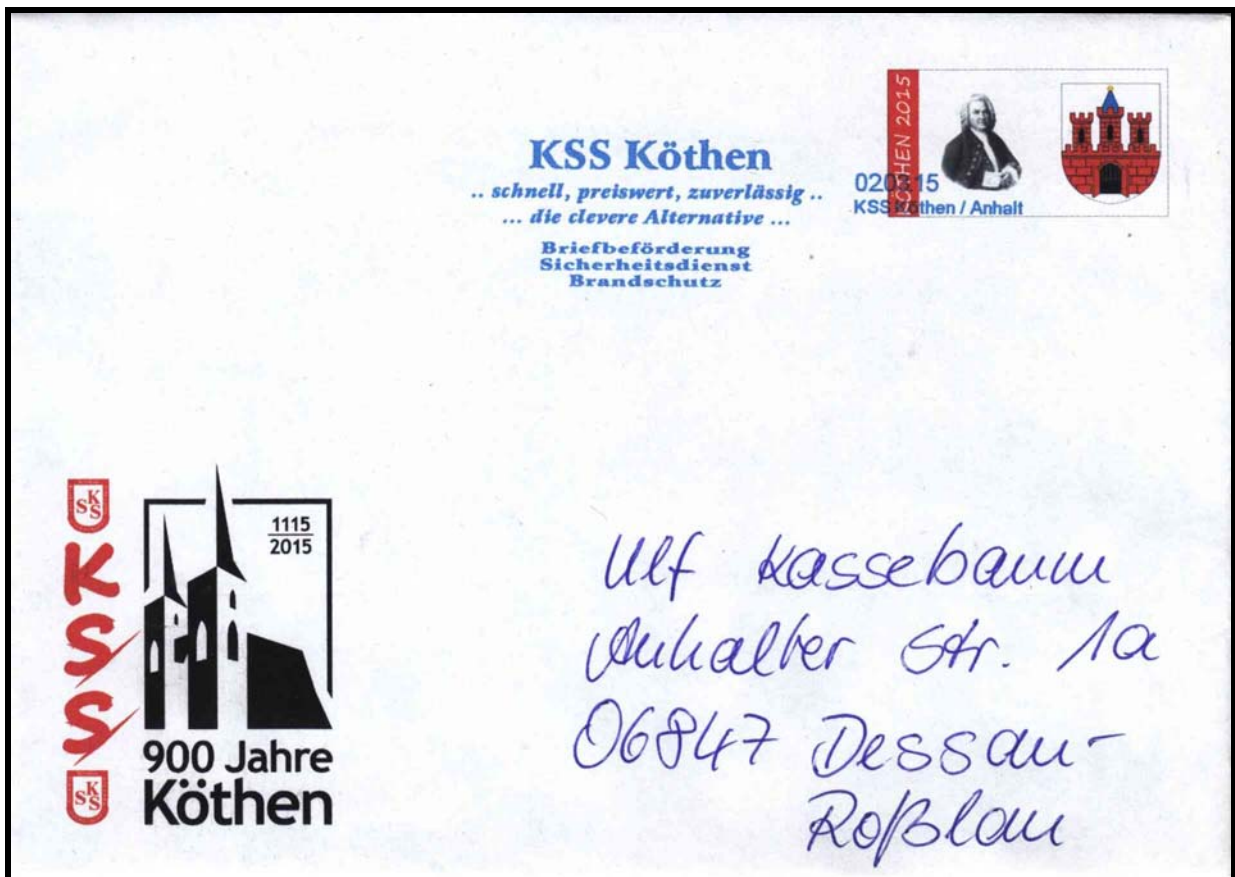 KSS Köthen
.. schnell, preiswert, zuverlässig ..
... die clevere Alternative ...
Briefbeförderung
Sicherheitsdienst
Brandschutz
KÖTHEN 2015
020315
KSS Köthen / Anhalt
SKS
KSS
SKS
1115
2015
900 Jahre
Köthen
Ulf Kassebaum
Anhalter Str. 1a
06847 Dessau-
Roßlau